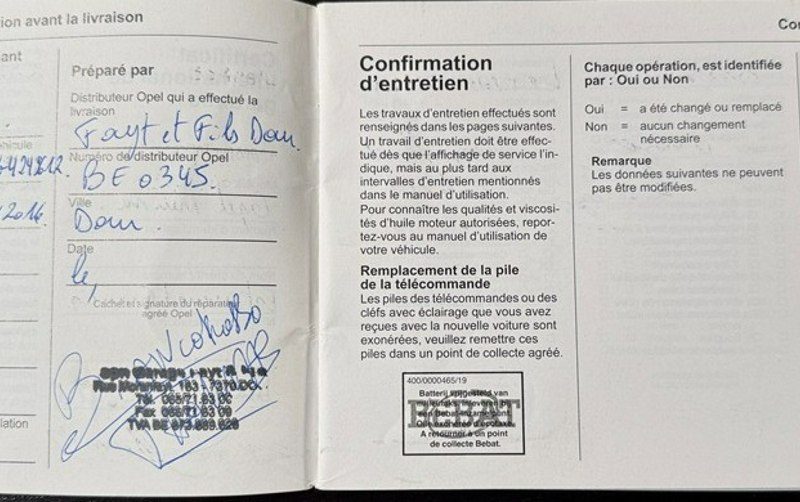 ion avant la livraison
ant
Préparé par
Distributeur Opel qui a effectué la
livraison
Fayt et Fils Dour.
Numéro de distributeur Opel
BE 0345.
Ville
Dour.
Date
le,
Cachet et signature du réparateur
agréé Opel
hicule
2016
lation
Rue 183 - 7370
Tél.
Fax
TVA BE
Con
Confirmation
d'entretien
Les travaux d'entretien effectués sont
renseignés dans les pages suivantes.
Un travail d'entretien doit être effec-
tué dès que l'affichage de service l'in-
dique, mais au plus tard aux
intervalles d'entretien mentionnés
dans le manuel d'utilisation.
Pour connaître les qualités et viscosi-
tés d'huile moteur autorisées, repor-
tez-vous au manuel d'utilisation de
votre véhicule.
Remplacement de la pile
de la télécommande
Les piles des télécommandes ou des
cléfs avec éclairage que vous avez
reçues avec la nouvelle voiture sont
exonérées, veuillez remettre ces
piles dans un point de collecte agréé.
400/0000465/19
Batterij vrijgesteld van
BEBAT
A retourner à un point
de collecte Bebat.
Chaque opération, est identifiée
par : Oui ou Non
Oui = a été changé ou remplacé
Non = aucun changement
nécessaire
Remarque
Les données suivantes ne peuvent
pas être modifiées.